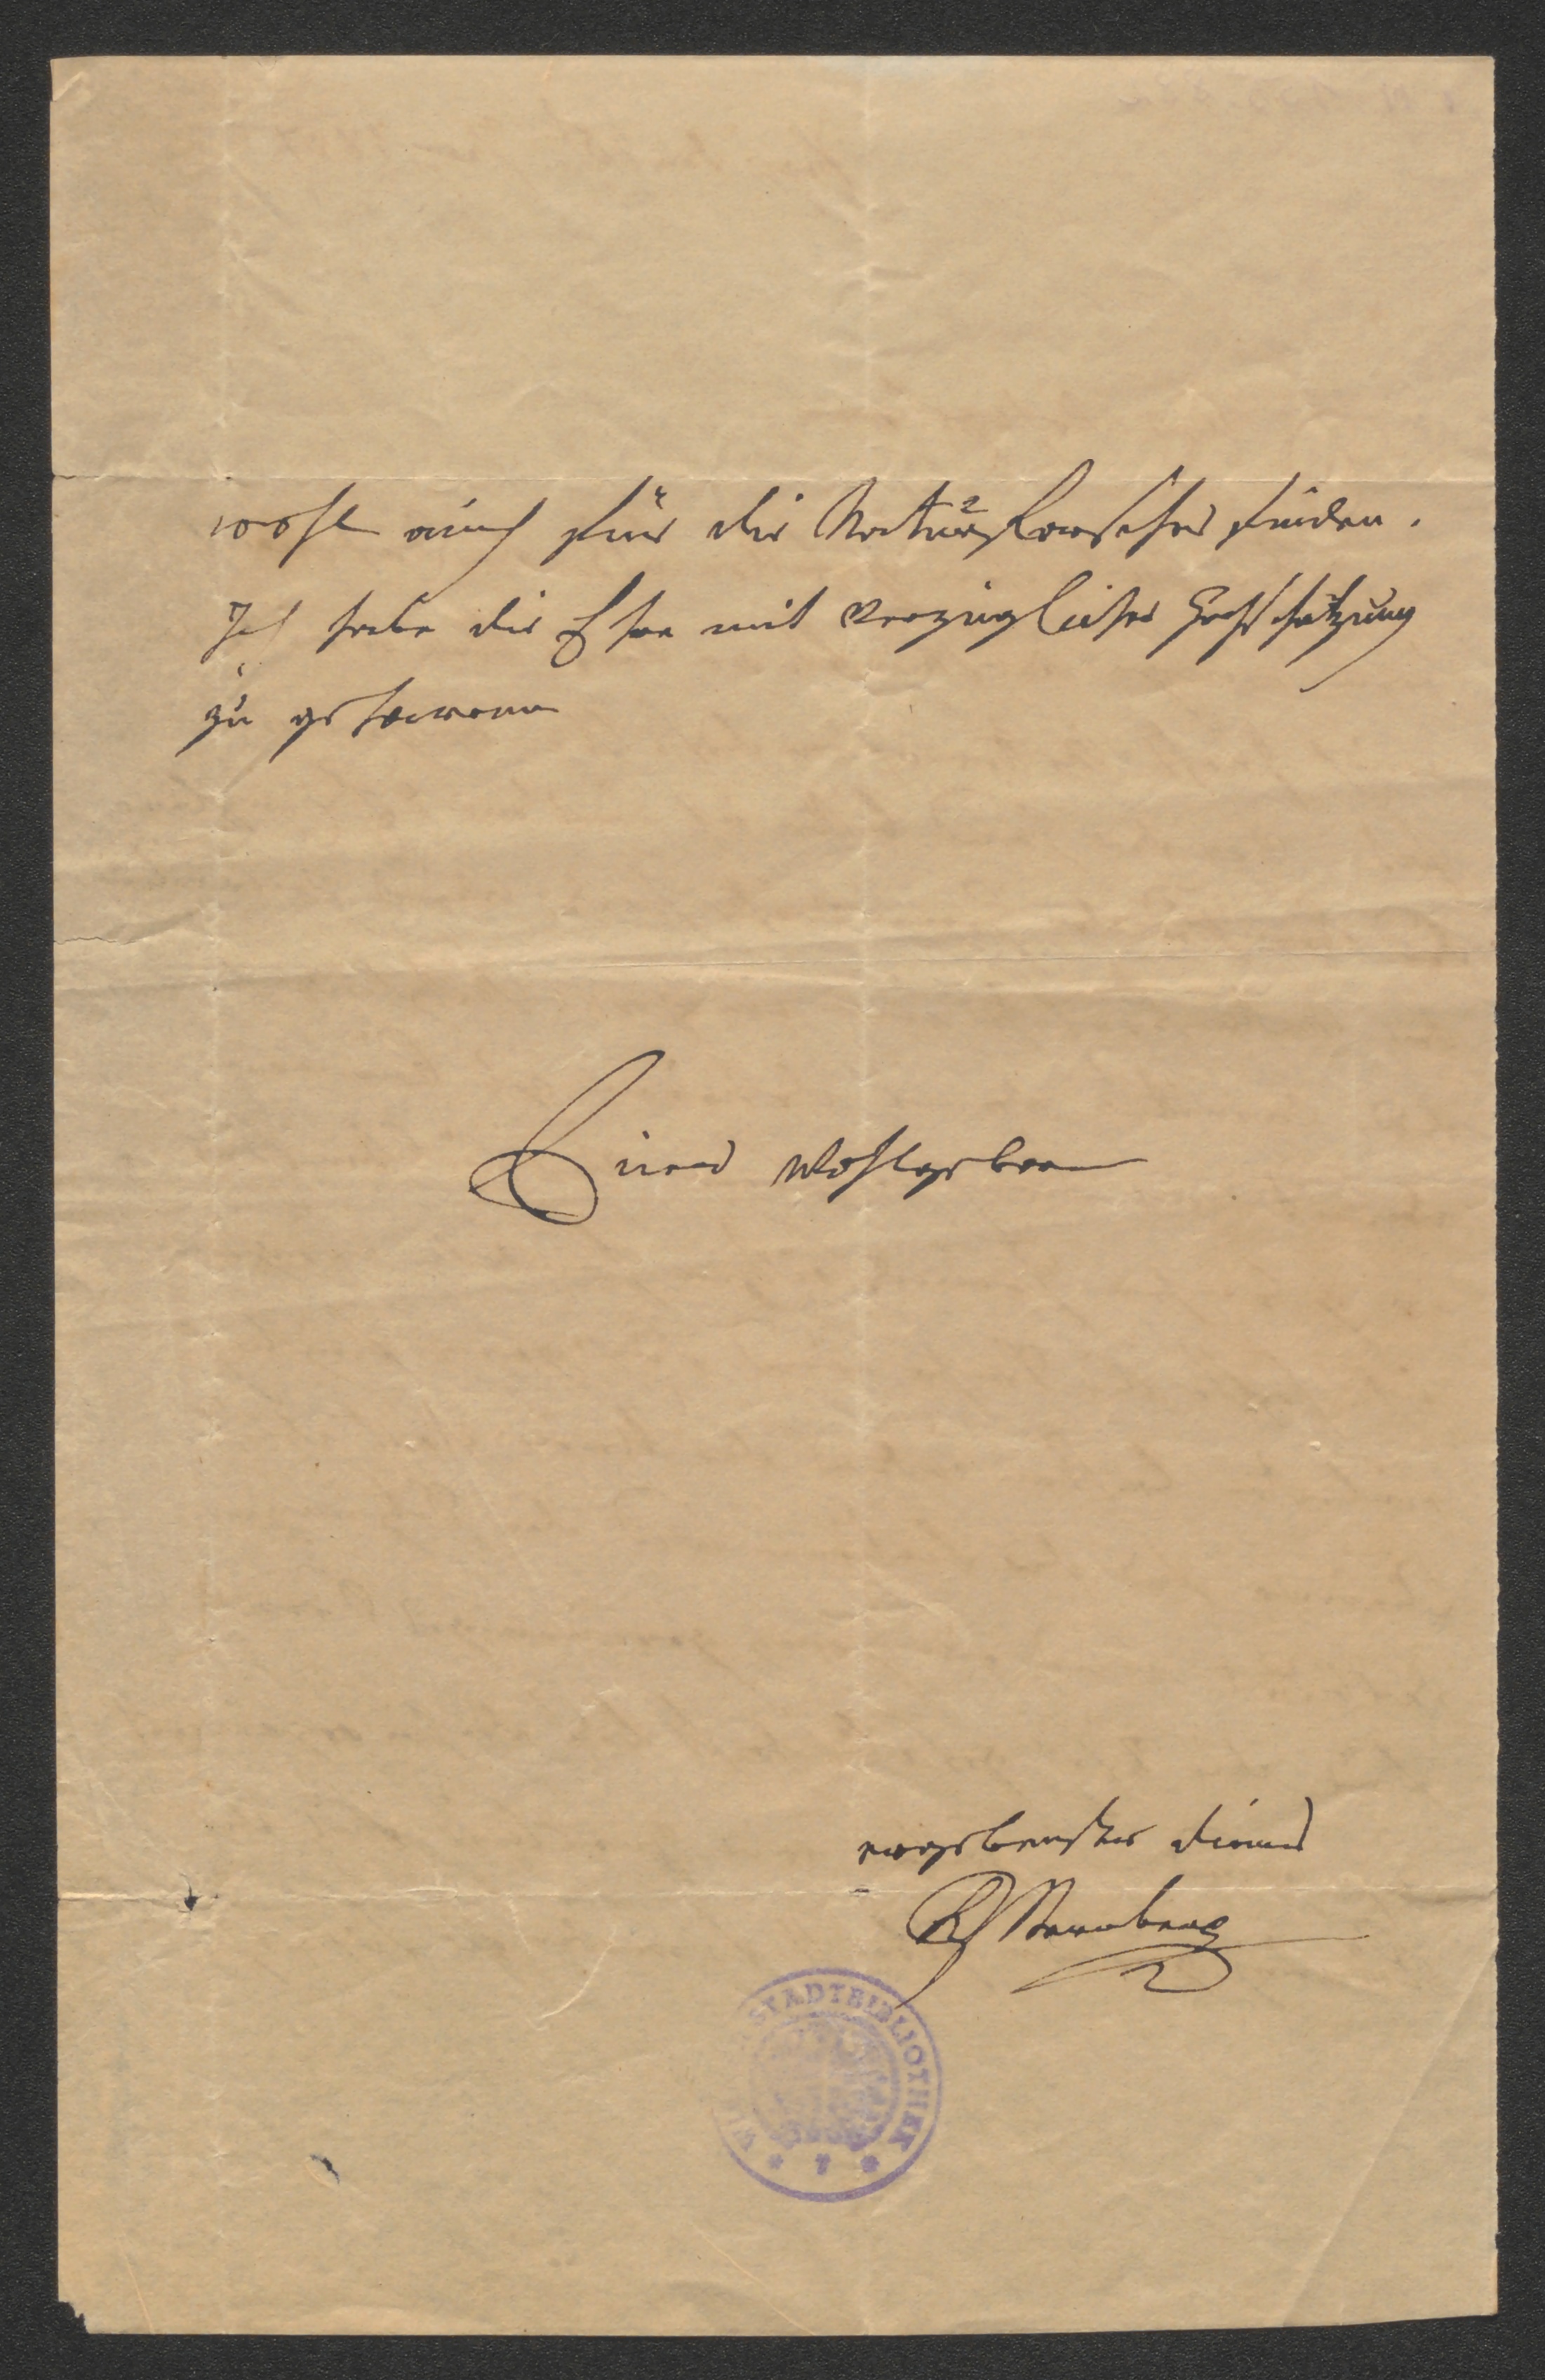 wohl auch für die Naturforscher finden.
Ich habe die Ehre mit vorzüglicher Hochschätzung
zu geharren
Euer Wohlgebren
ergebenster Diener
Sternberg
STADTBIBLIOTHEK